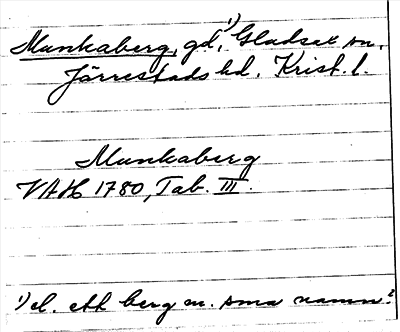 Munkaberg, gd, 1) Gladsax sn,
Järrestads hd. Krist. l.
Munkaberg
VAH 1780, Tab. III.
1) el. ett berg m. sma namn?